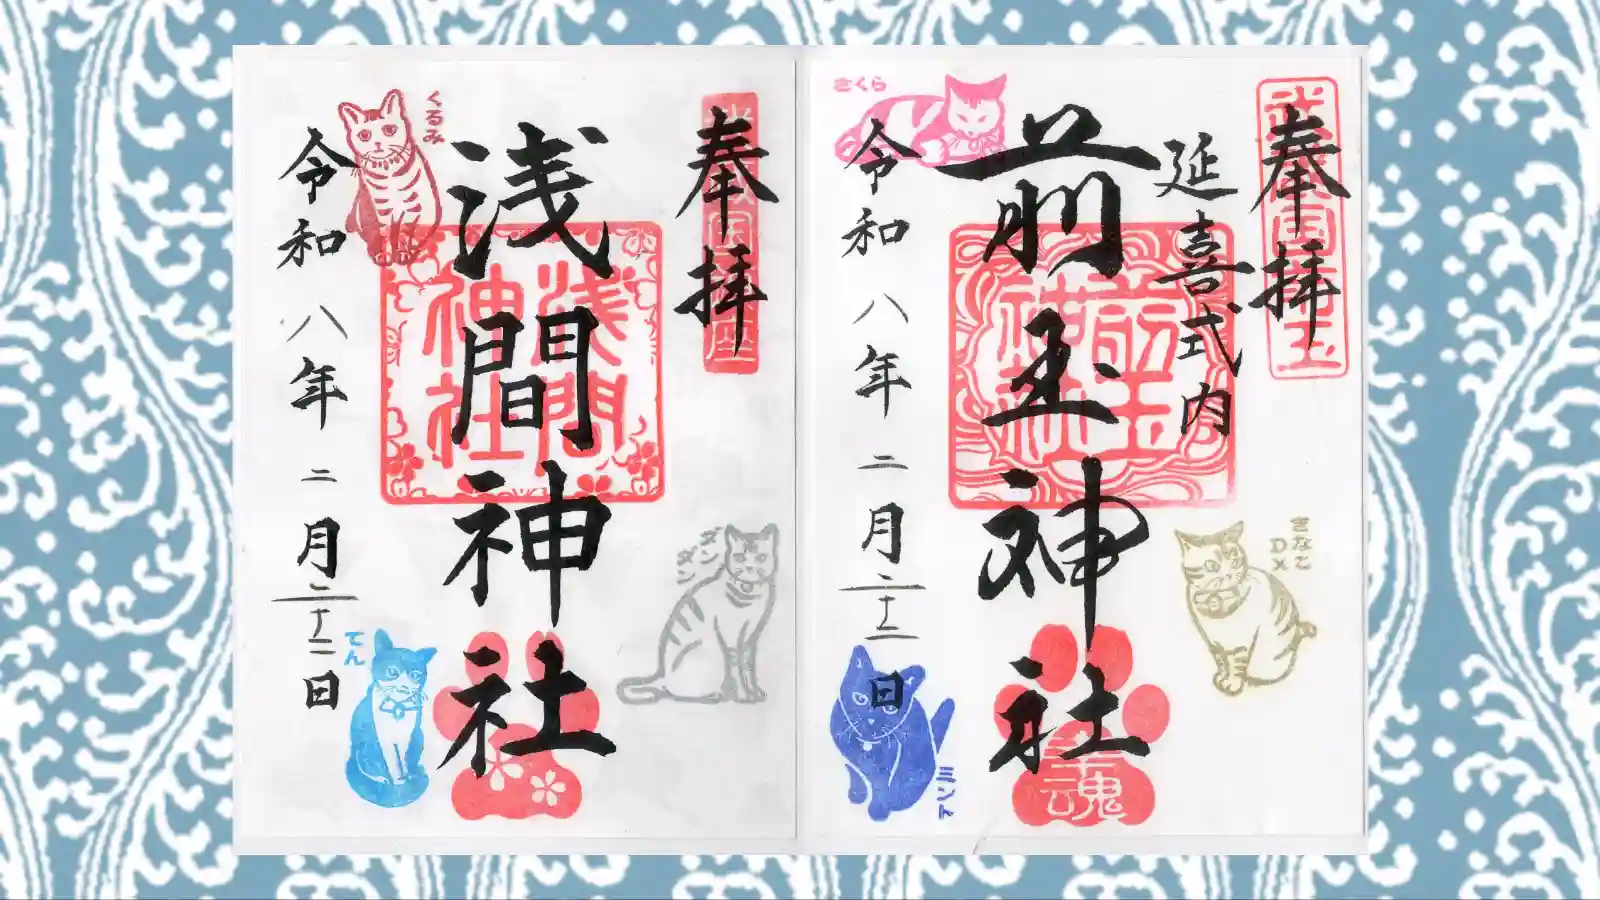 奉拝
延喜式内
前玉神社
令和八年二月二十二日
さくら
きなこ
DX
ミント
幸魂
前玉
神社
奉拝
浅間神社
令和八年二月二十二日
くるみ
ダン
ダン
てん
浅間
神社